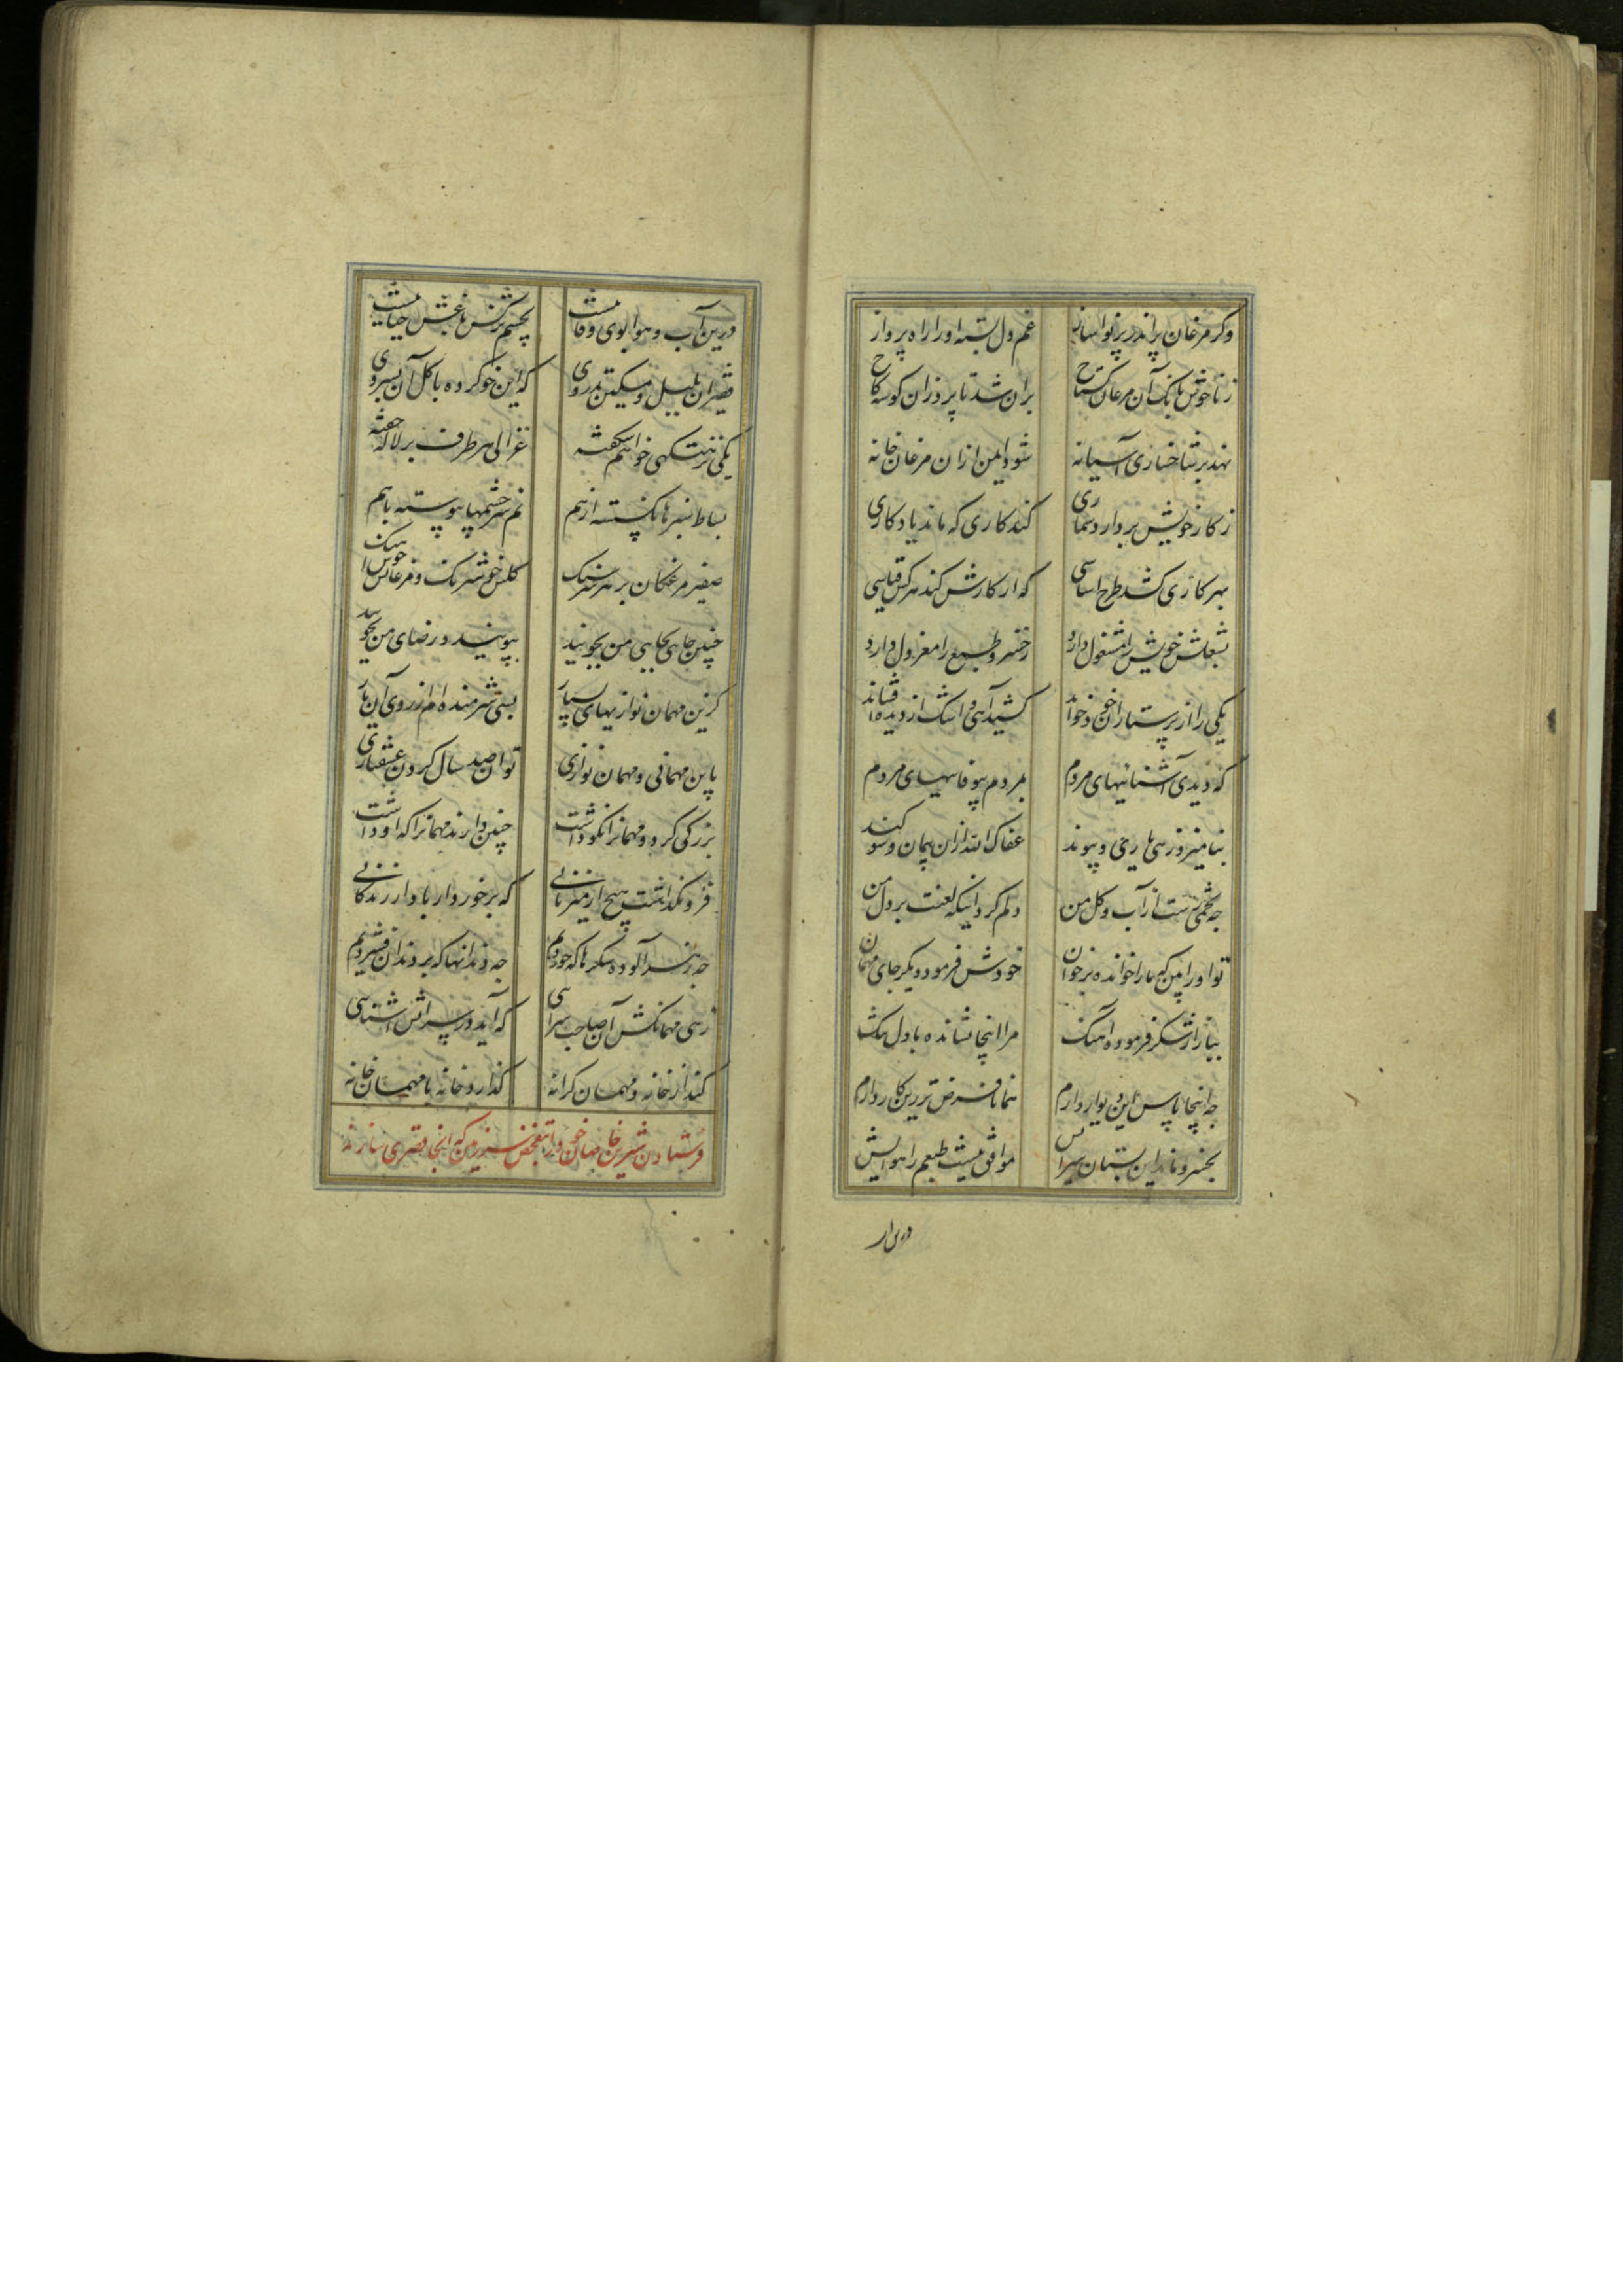 وکر مرغان پراندر پرنواساز غم دل بسته او را راه پرواز
زناخوش بانک آن مرغان کستاخ بران شد تا پرد زان کوشه کاخ
نهد بر شاخساری آشیانه شود ایمن ازان مرغان خانه
ز کار خویش بردارد شماری کند کاری که ماند یادکاری
بهر کاری کشد طرح اساسی که از کارش کند هر کس قیاسی
بشغلش خویش را مشغول دارد ز خسرو طبع را معزول دارد
یکی را از پرستاران خود خواند کشید آهی و اشک از دیده افشاند
که دیدی آشناییهای مردم بمردم بیوفاییهای مردم
بنامیزد زهی یاری و پیوند عفاک الله ازان پیمان و سوکند
چه تخمی رست از آب و کل من دلم کرد اینکه لعنت بر دل من
تو او را بین که ما را خوانده بر خوان خودش فرمود دیکر جای مهمان
ببازار شکر فرموده آهنک مرا اینجا نشانده با دل تنک
چه اینجا پاس این دیوار دارم همانا فرض تر زین کار دارم
بخسرو ماند این بستان سرایش موافق نیست طبعم را هوایش
درین آب
درین آب و هوا بوی وفا نیست بچشم نرکس باغش حیا نیست
فقیر آن بلبل و مسکین تذروی که این خو کرده با کل آن بسروی
یکی نزهتکهی خواهم شکفته غزالی هر طرف بر لاله خفته
بساط سبزها نکسسته از هم نم سرچشمها پیوسته با هم
صفیر مرغکان بر هر سر سنک کلش خوش رنک و مرغانش خوش آهنک
چنین جایی بجایی من بجویید بپویید و رضای من بجویید
کزین مهمان نوازیهای بسیار بسی شرمنده ام از روی آن یار
باین مهمانی و مهمان نوازی توان صد سال کردن عشقبازی
بزرکی کرد و مهمانرا نکو داشت چنین دارند مهمانرا که او داشت
فرو نکذاشت هیچ از میزبانی که برخوردار بادا از زندکانی
چه زهر آلوده شکرها که خوردیم چه دندانها که بر دندان فشردیم
زهی مهمانکش آن صاحب سرایی که آید در سرایش آشنایی
کند از خانه و مهمان کرانه کذارد خانه با مهمان خانه
فرستادن شیرین خاصان خود را بتفحص سرزمین که آنجا قصری سازند